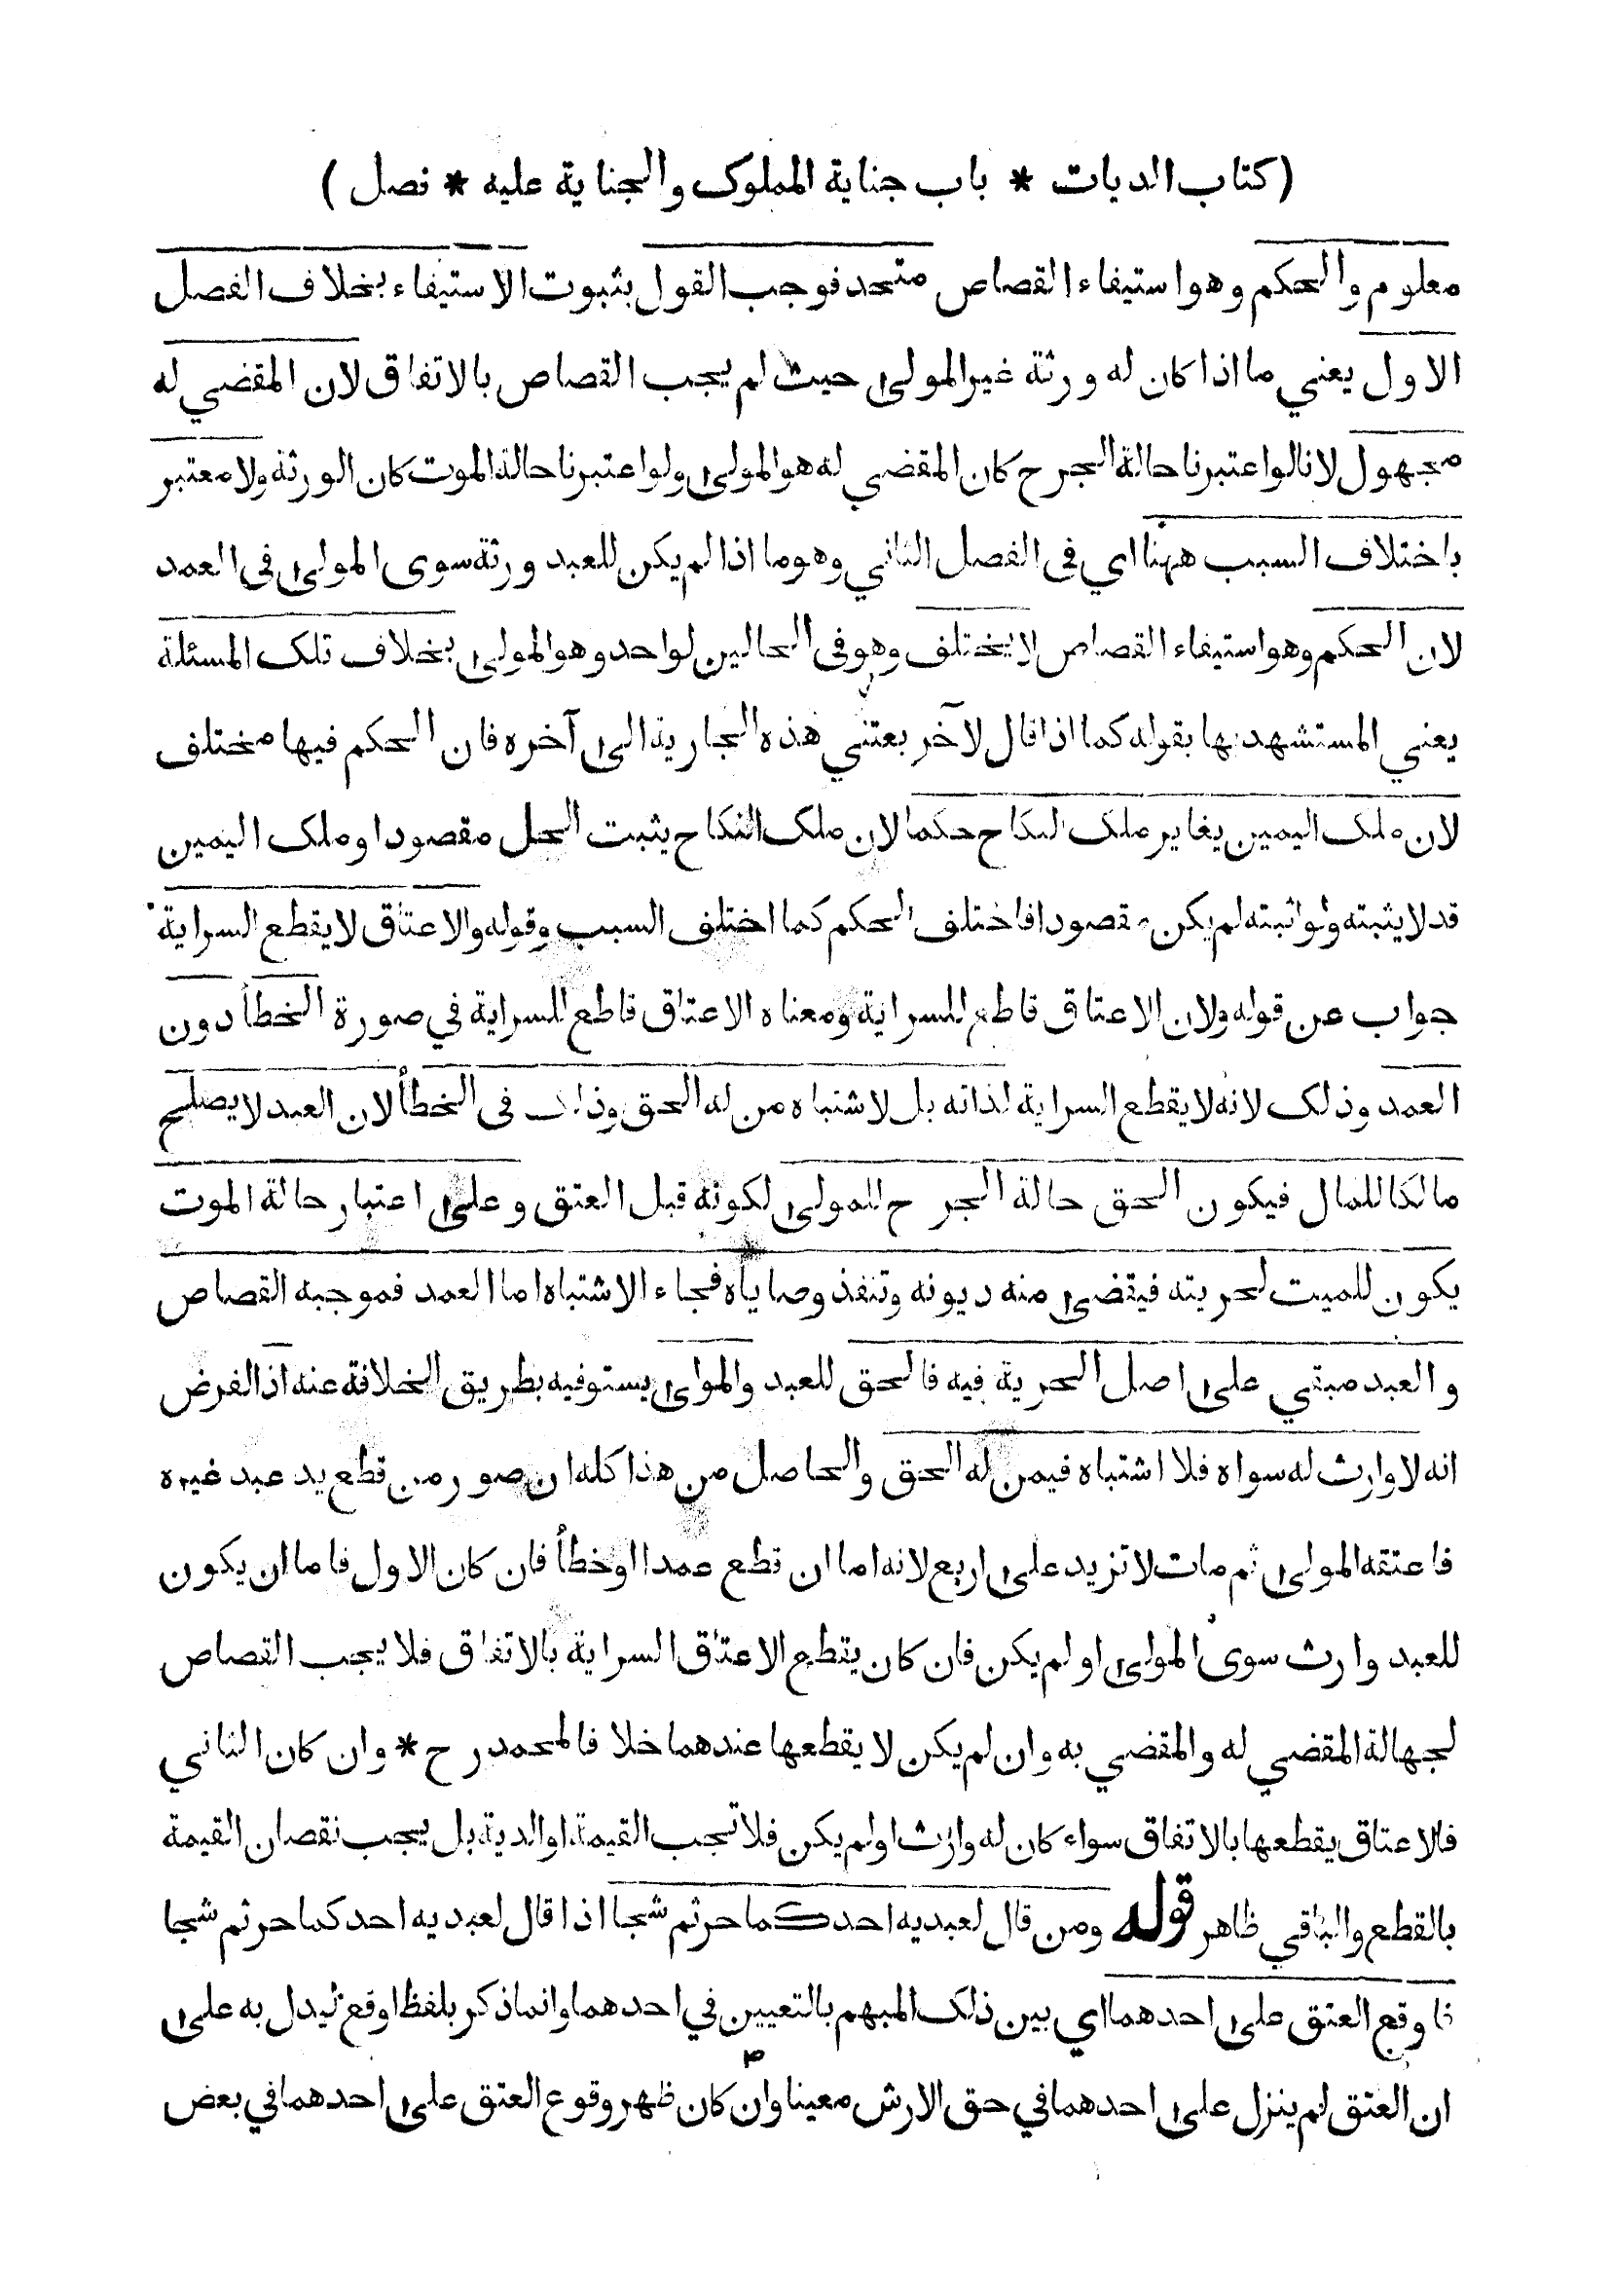 (كتاب الديات * باب جناية المملوك والجناية عليه * فصل)
معلوم والحكم وهو استيفاء القصاص متحد فوجب القول بثبوت الاستيفاء بخلاف الفصل
الاول يعني ما اذا كان له ورثة غير المولى حيث لم يجب القصاص بالاتفاق لان المقضي له
مجهول لانا لو اعتبرنا حالة الجرح كان المقضي له هو المولى ولو اعتبرنا حالة الموت كان الورثة ولا معتبر
باختلاف السبب ههنا اي في الفصل الثاني وهو ما اذا لم يكن للعبد ورثة سوى المولى في العمد
لان الحكم وهو استيفاء القصاص لا يختلف وهو في الحالين لواحد وهو المولى بخلاف تلك المسئلة
يعني المستشهد بها بقوله كما اذا قال لآخر بعتني هذه الجارية الى آخره فان الحكم فيها مختلف
لان ملك اليمين يغاير ملك النكاح حكما لان ملك النكاح يثبت الحل مقصودا وملك اليمين
قد لا يثبته ولو اثبته لم يكن مقصودا فاختلف الحكم كما اختلف السبب وقوله والاعتاق لا يقطع السراية
جواب عن قوله ولان الاعتاق قاطع للسراية ومعناه الاعتاق قاطع للسراية في صورة الخطأ دون
العمد وذلك لانه لا يقطع السراية لذاته بل لاشتباه من له الحق وذلك في الخطأ لان العبد لا يصلح
مالكا للمال فيكون الحق حالة الجرح للمولى لكونه قبل العتق وعلى اعتبار حالة الموت
يكون للميت لحريته فيقضى منه ديونه وتنفذ وصاياه فجاء الاشتباه اما العمد فموجبه القصاص
والعبد مبقي على اصل الحرية فيه فالحق للعبد والمولى يستوفيه بطريق الخلافة عنه اذ الفرض
انه لا وارث له سواه فلا اشتباه فيمن له الحق والحاصل من هذا كله ان صور من قطع يد عبد غيره
فاعتقه المولى ثم مات لا تزيد على اربع لانه اما ان قطع عمدا او خطأ فان كان الاول فاما ان يكون
للعبد وارث سوى المولى او لم يكن فان كان يقطع الاعتاق السراية بالاتفاق فلا يجب القصاص
لجهالة المقضي له والمقضي به وان لم يكن لا يقطعها عندهما خلافا لمحمد رح * وان كان الثاني
فالاعتاق يقطعها بالاتفاق سواء كان له وارث او لم يكن فلا تجب القيمة او الدية بل يجب نقصان القيمة
بالقطع والباقي ظاهر قوله ومن قال لعبديه احدكما حر ثم شجا اذا قال لعبديه احدكما حر ثم شجا
فاوقع العتق على احدهما اي بين ذلك المبهم بالتعيين في احدهما وانما ذكر بلفظ اوقع ليدل به على
ان العتق لم ينزل على احدهما في حق الارش معينا وان كان ظهر وقوع العتق على احدهما في بعض